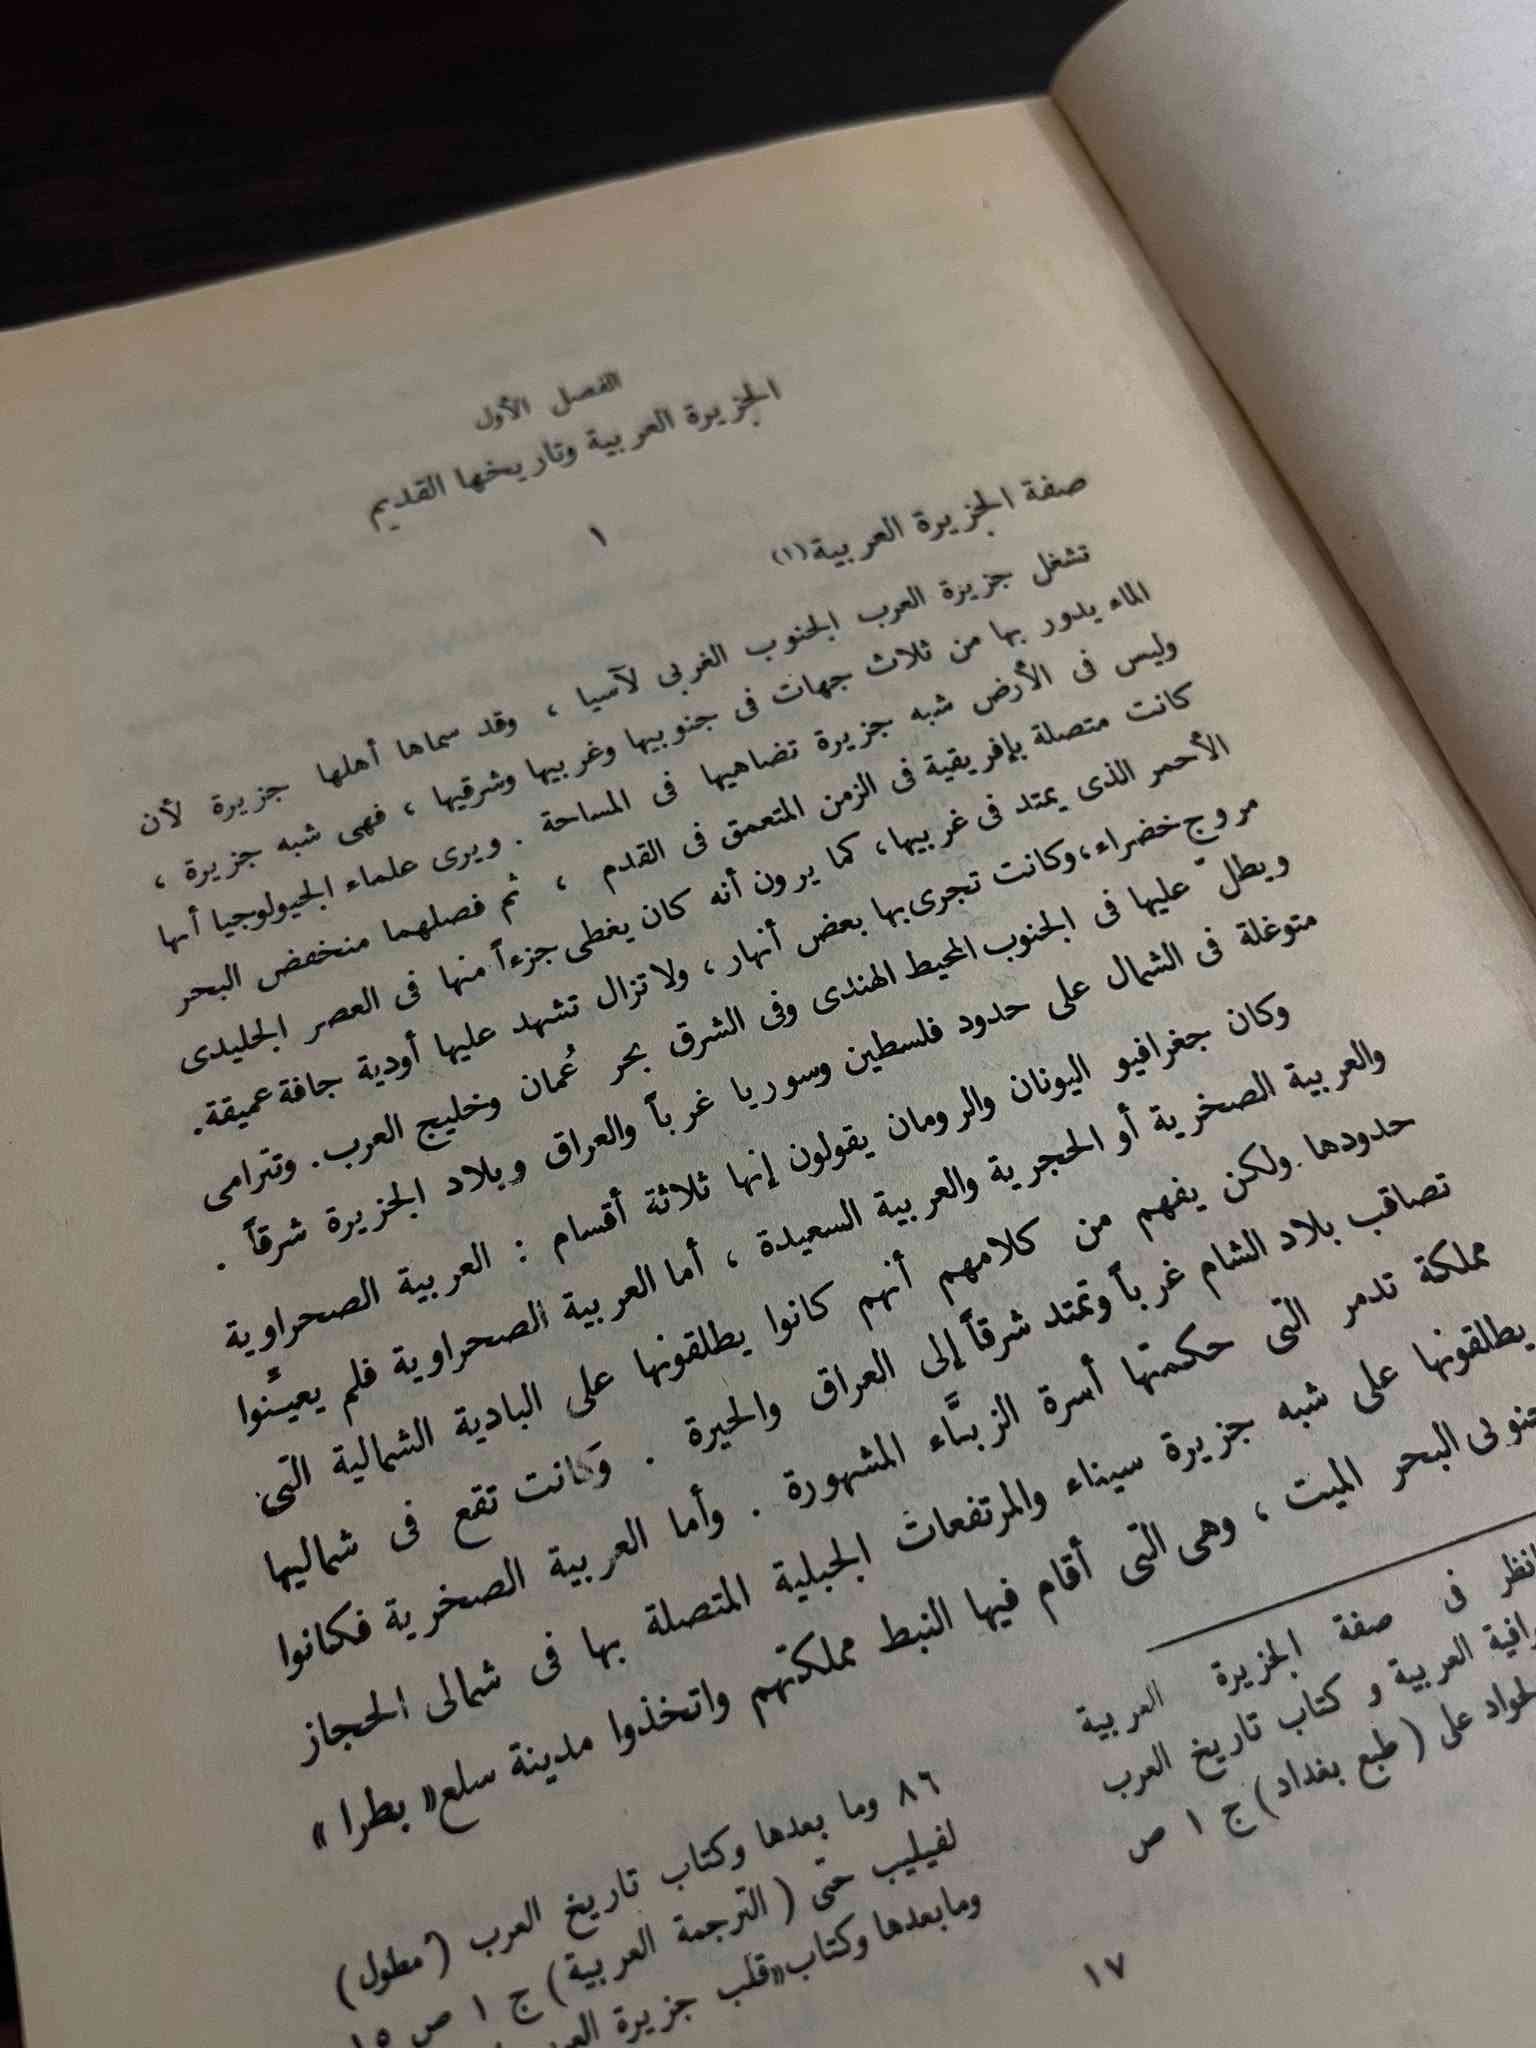 الفصل الأول
الجزيرة العربية وتاريخها القديم
١
صفة الجزيرة العربية(١)
تشغل جزيرة العرب الجنوب الغربى لآسيا ، وقد سماها أهلها جزيرة لأن
الماء يدور بها من ثلاث جهات فى جنوبيها وغربيها وشرقيها ، فهى شبه جزيرة ،
وليس فى الأرض شبه جزيرة تضاهيها فى المساحة . ويرى علماء الجيولوجيا أنها
كانت متصلة بإفريقية فى الزمن المتعمق فى القدم ، ثم فصلهما منخفض البحر
الأحمر الذى يمتد فى غربيها، كما يرون أنه كان يغطى جزءاً منها فى العصر الجليدى
مروج خضراء، وكانت تجرى بها بعض أنهار ، ولا تزال تشهد عليها أودية جافة عميقة.
ويطلّ عليها فى الجنوب المحيط الهندى وفى الشرق بحر عُمان وخليج العرب . وتترامى
متوغلة فى الشمال على حدود فلسطين وسوريا غرباً والعراق وبلاد الجزيرة شرقاً .
وكان جغرافيو اليونان والرومان يقولون إنها ثلاثة أقسام : العربية الصحراوية
والعربية الصخرية أو الحجرية والعربية السعيدة ، أما العربية الصحراوية فلم يعينِّوا
حدودها . ولكن يفهم من كلامهم أنهم كانوا يطلقونها على البادية الشمالية التى
تصاقب بلاد الشام غرباً وتمتد شرقاً إلى العراق والحيرة . وكانت تقع فى شماليها
مملكة تدمر التى حكمتها أسرة الزبَّاء المشهورة . وأما العربية الصخرية فكانوا
يطلقونها على شبه جزيرة سيناء والمرتفعات الجبلية المتصلة بها فى شمالى الحجاز
جنوبى البحر الميت ، وهى التى أقام فيها النبط مملكتهم واتخذوا مدينة سلع « بطرا »
انظر فى صفة الجزيرة العربية
العربية و كتاب تاريخ العرب
على ( طبع بغداد ) ج ١ ص
٨٦ وما بعدها وكتاب تاريخ العرب ( مطول )
لفيليب حتّى ( الترجمة العربية ) ج ١ ص
وما بعدها وكتاب «قلب جزيرة
١٧